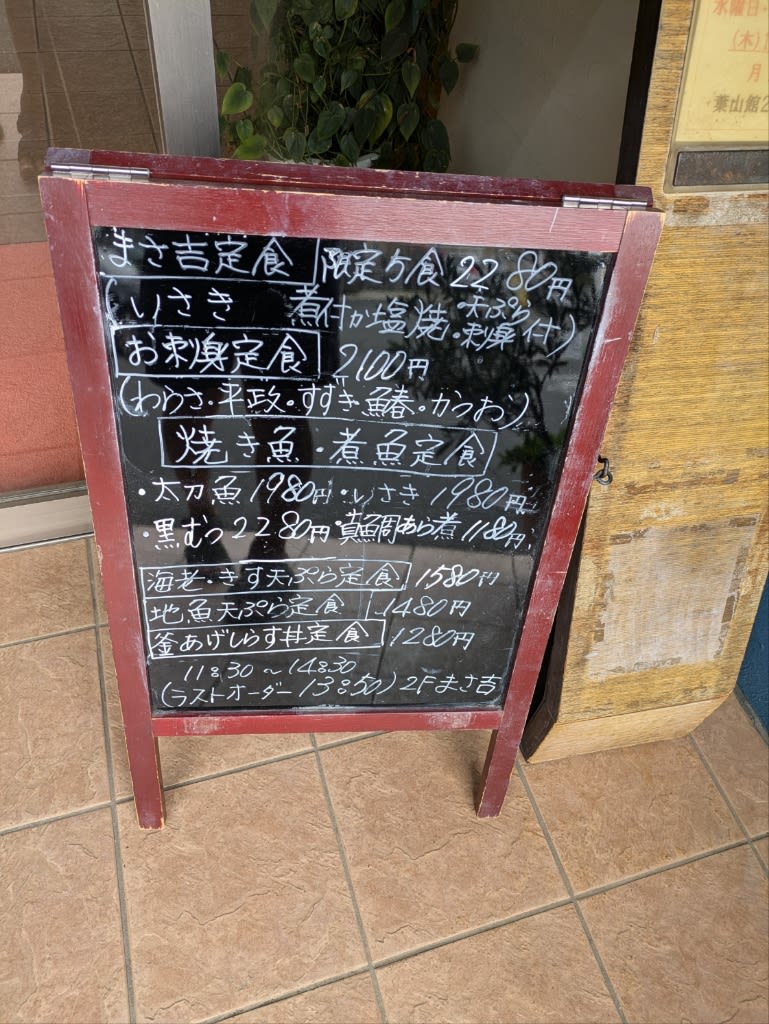 まさ吉定食 限定5食 2280円
(いさき 煮付か塩焼・天ぷら・刺身付)
お刺身定食 2100円
(わらさ・平政・すずき・鰆・かつお)
焼き魚・煮魚定食
・太刀魚1980円・いさき1980円
・黒むつ2280円・真鯛あら煮1180円
海老・きす天ぷら定食 1580円
地魚天ぷら定食 1480円
釜あげしらす丼定食 1280円
11:30～14:30
(ラストオーダー13:50) 2Fまさ吉
水曜日
(木)
月
葉山館2